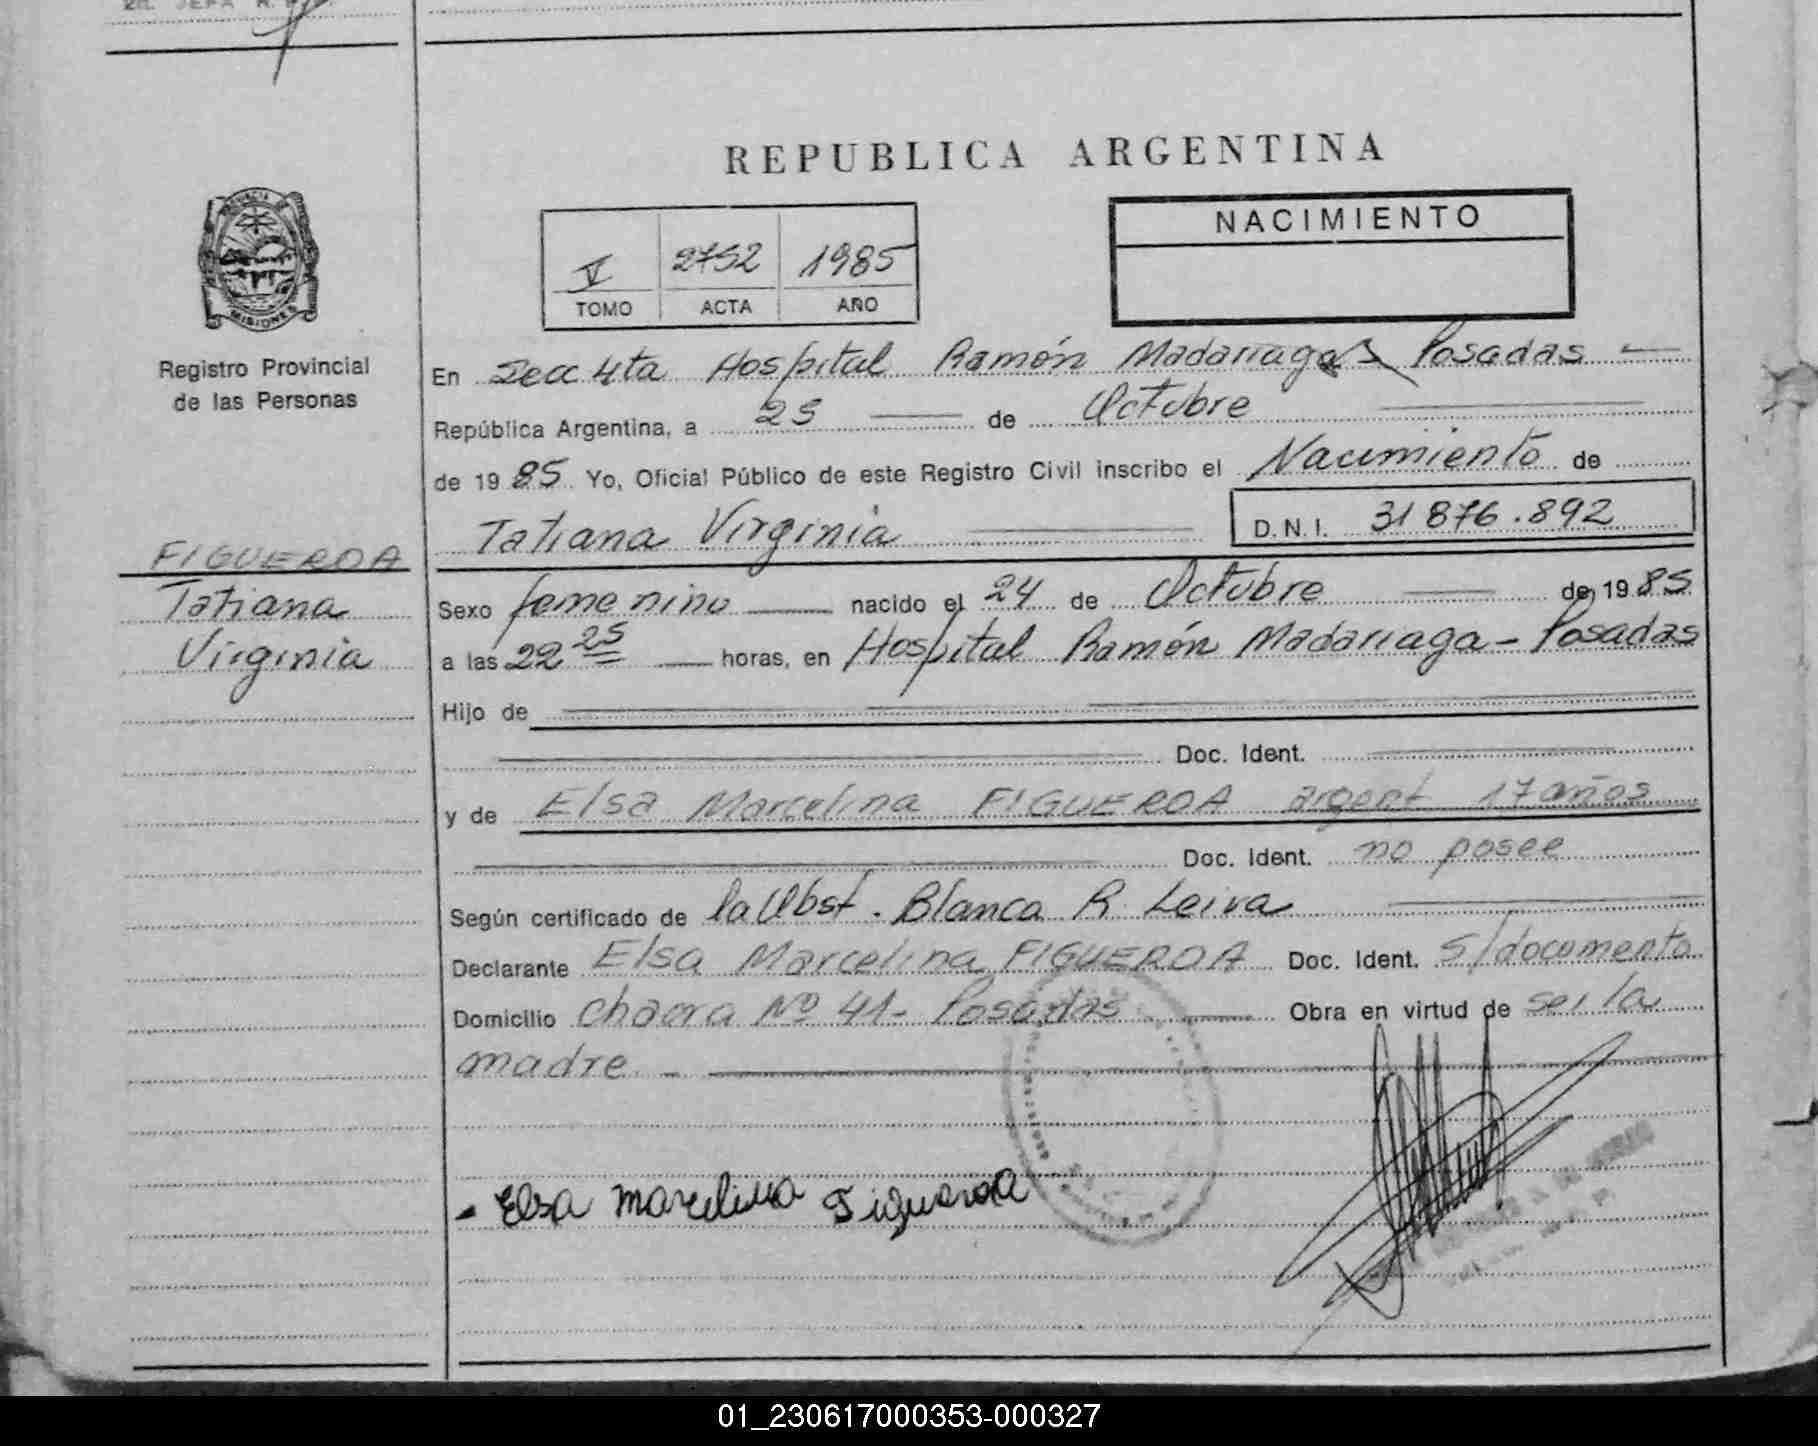 REPUBLICA ARGENTINA
PROVINCIA DE
MISIONES
Registro Provincial
de las Personas
V 2752 1985
TOMO ACTA AÑO
NACIMIENTO
En Secc 4ta Hospital Ramón Madariaga Posadas
República Argentina, a 25 de Octubre
de 1985 Yo, Oficial Público de este Registro Civil inscribo el Nacimiento de
Tatiana Virginia D.N.I. 31 876.892
FIGUEROA
Tatiana
Virginia
Sexo femenino nacido el 24 de Octubre de 1985
a las 22 25 horas, en Hospital Ramón Madariaga - Posadas
Hijo de
Doc. Ident.
y de Elsa Marcelina FIGUEROA argent 17 años
Doc. Ident. no posee
Según certificado de la Obst. Blanca R. Leiva
Declarante Elsa Marcelina FIGUEROA Doc. Ident. S/documento
Domicilio Chacra Nº 41- Posadas Obra en virtud de ser la
madre -
- Elsa Marcelina Figueroa
01_230617000353-000327